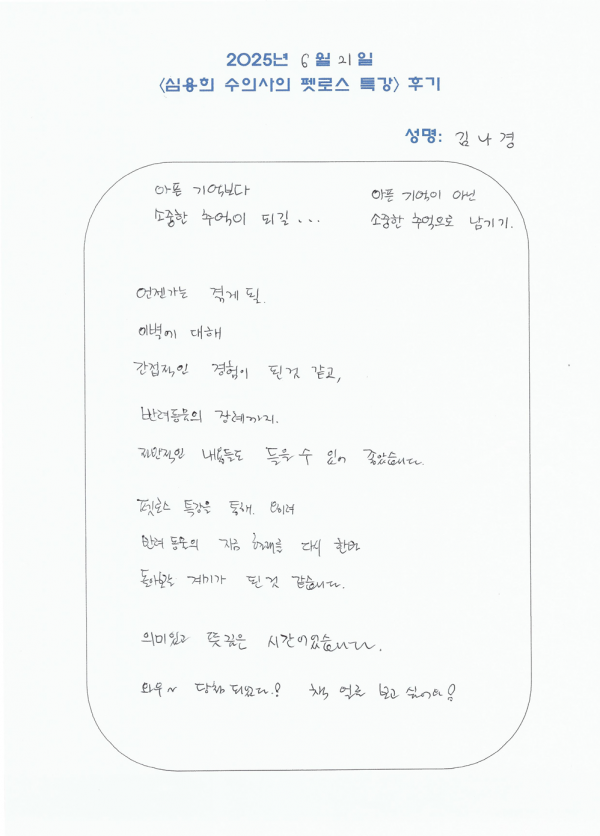 2025년 6월 21일
<심용희 수의사의 펫로스 특강> 후기
성명: 김나경
아픈 기억보다
소중한 추억이 되길...
아픈 기억이 아닌
소중한 추억으로 남기기.
언젠가는 겪게 될.
이별에 대해
간접적인 경험이 된 것 같고,
반려동물의 장례까지.
전반적인 내용들도 들을 수 있어 좋았습니다.
펫로스 특강을 통해. 오히려
반려동물의 지금 현재를 다시 한번
돌아볼 계기가 된 것 같습니다.
의미있고 뜻깊은 시간이었습니다.
와우~ 당첨되었다! 책 얼른 보고 싶어요!